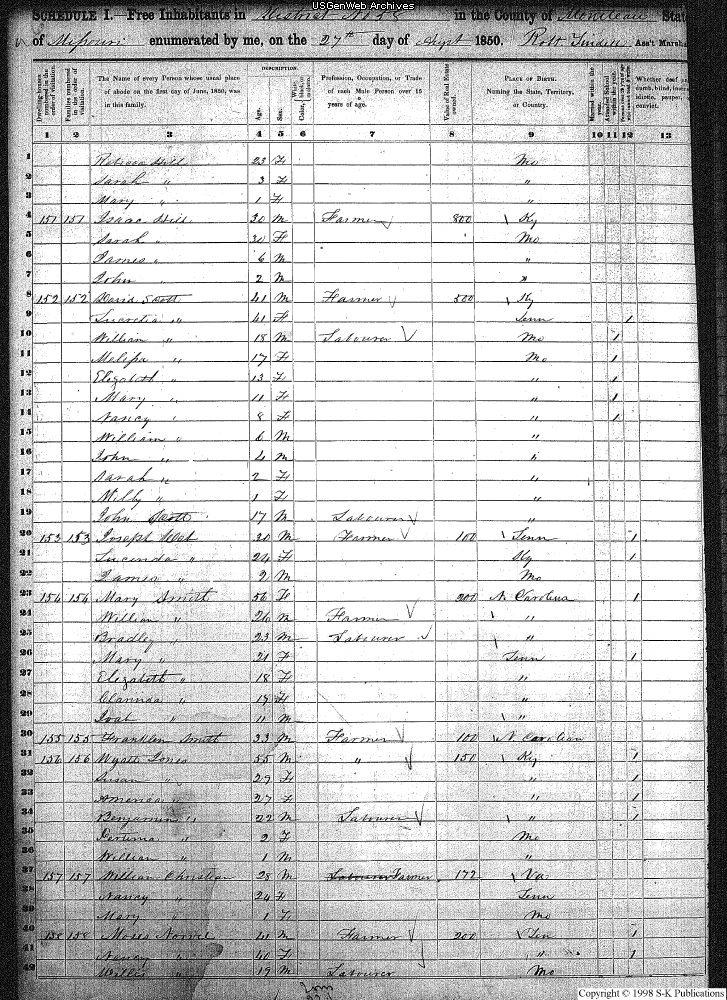 USGenWeb Archives
SCHEDULE I.—Free Inhabitants in District No 58 in the County of Moniteau State
of Missouri enumerated by me, on the 27th day of Sept 1850. Robt Ass't Marsha
Dwelling-houses numbered in the order of visitation. Families numbered in the order of visitation. The Name of every Person whose usual place of abode on the first day of June, 1850, was in this family. DESCRIPTION. Age. Sex. Color, White, black, or mulatto. Profession, Occupation, or Trade of each Male Person over 15 years of age. Value of Real Estate owned. PLACE OF BIRTH. Naming the State, Territory, or Country. Married within the year. Attended School within the year. Whether deaf and dumb, blind, insane, idiotic, pauper, convict.
1 2 3 4 5 6 7 8 9 10 11 12 13
1 Rebecca Hill 23 F Mo
2 Sarah " 3 F "
3 Mary " 1 F "
4 151 151 Isaac Hill 30 M Farmer 800 Ky
5 Sarah " 30 F Mo
6 James " 6 M "
7 John " 2 M "
8 152 152 David Scott 41 M Farmer 500 Ky
9 Lucretia " 41 F Tenn 1
10 William " 18 M Labourer Mo 1
11 Melissa " 17 F Mo 1
12 Elizabeth " 13 F " 1
13 Mary " 11 F " 1
14 Nancy " 8 F " 1
15 William " 6 M "
16 John " 4 M "
17 Sarah " 2 F "
18 Milly " 1 F "
19 John Scott 17 M Labourer "
20 153 153 Joseph 30 M Farmer 100 Tenn 1
21 Lucinda " 24 F Ky 1
22 James " 2 M Mo
23 154 154 Mary Smith 56 F 200 N Carolina 1
24 William " 26 M Farmer "
25 Bradley " 23 M Labourer "
26 Mary " 21 F Tenn 1
27 Elizabeth " 18 F "
28 " 18 F "
29 " 11 M "
30 155 155 Franklin Smith 33 M Farmer 100 N Carolina
31 156 156 Wyatt Jones 55 M " 150 Ky 1
32 Susan " 29 F " 1
33 America " 27 F " 1
34 Benjamin " 22 M Labourer " 1
35 " 2 F Mo
36 William " 1 M "
37 157 157 William Christian 28 M Labourer Farmer 172 Va
38 Nancy " 24 F Tenn
39 Mary " 1 F Mo
40 158 158 Moses 41 M Farmer 200 Ten 1
41 Nancy " 40 F " 1
42 Willis " 19 M Labourer Mo
Copyright © 1998 S-K Publications